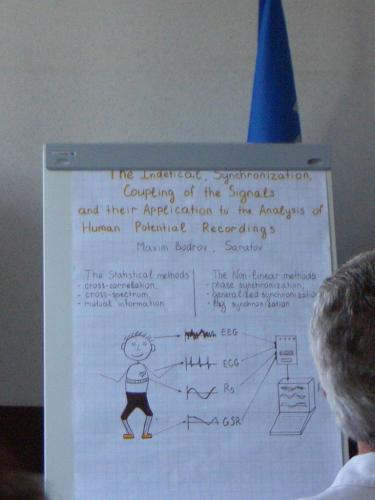 The Indetical, Synchronization,
Coupling of the Signals
and their Application to the Analysis of
Human Potential Recordings
Maxim Bodrov, Saratov
The Statistical methods
- cross-correlation,
- cross-spectrum,
- mutual information
The Non-linear methods
- phase synchronization,
- generalized synchronization
- lag synchronization
EEG
ECG
Rs
GSR